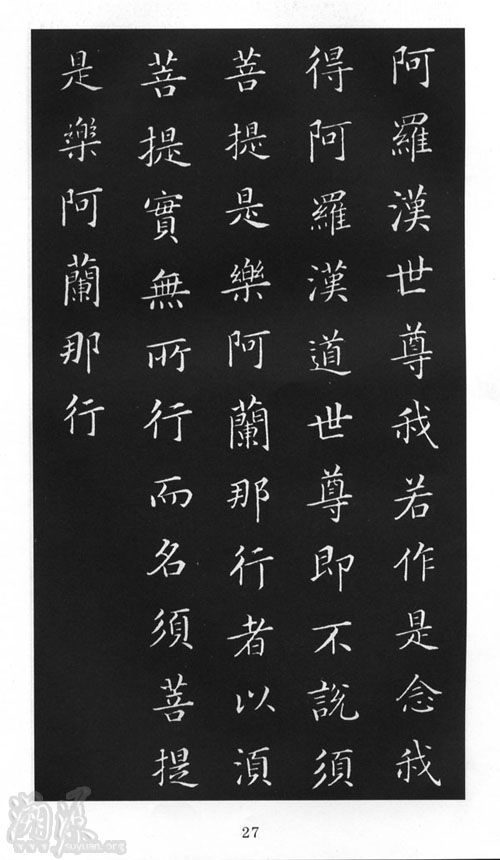 阿羅漢世尊我若作是念我
得阿羅漢道世尊即不說須
菩提是樂阿蘭那行者以須
菩提實無所行而名須菩提
是樂阿蘭那行
27
溯源
www.suyuan.org